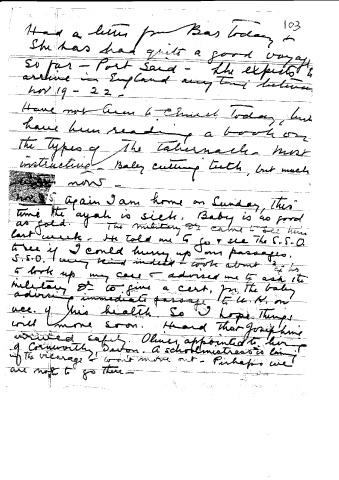 103
Had a letter from Bas today &
She has had quite a good voyage
so far - Port Said - She expects to
arrive in England any time between
Nov 19 - 22.
Have not been to Church today, but
have been reading a book on
the types of the Tabernacle. Most
instructive - Baby cutting teeth, but much
now -
Nov 5 Again I am home on Sunday, this
time the ayah is sick. Baby is as good
as gold. The military Dr came to see him
last week. He told me to go & see the S.S.O
to see if I could hurry up our passages.
S.S.O. was kind & took about
to look up my case & advised me to ask the
military Dr to give a cert. for the baby
advising immediate passage to U.K. on
acc. of his health. So I hope things
will move soon. Heard that Josephine
arrived safely. Oliver appointed to living
of Cornworthy Devon. A schoolmistress is living
in the vicarage & won't move out - Perhaps we
are not to go there -